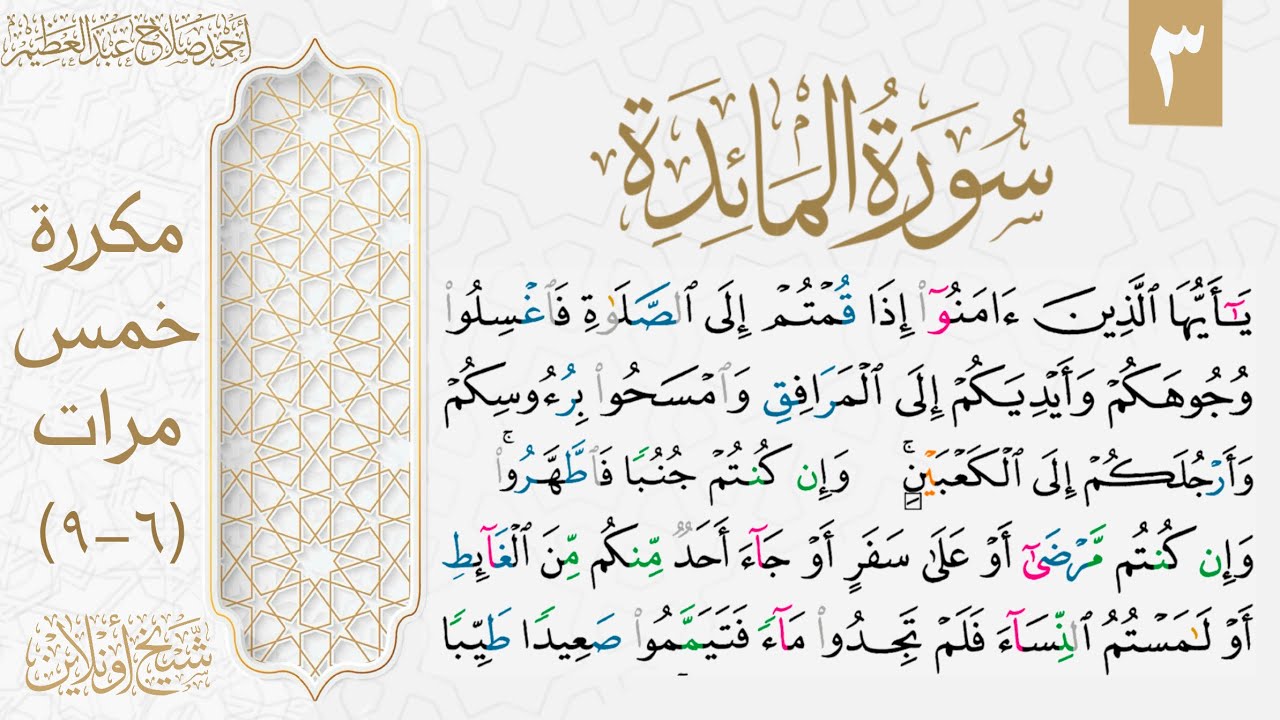 ٣
أحمد صلاح عبد العظيم
سُورَةُ الْمَائِدَةِ
يَٰٓأَيُّهَا ٱلَّذِينَ ءَامَنُوٓا۟ إِذَا قُمْتُمْ إِلَى ٱلصَّلَوٰةِ فَٱغْسِلُوا۟
وُجُوهَكُمْ وَأَيْدِيَكُمْ إِلَى ٱلْمَرَافِقِ وَٱمْسَحُوا۟ بِرُءُوسِكُمْ
وَأَرْجُلَكُمْ إِلَى ٱلْكَعْبَيْنِ ۚ وَإِن كُنتُمْ جُنُبًا فَٱطَّهَّرُوا۟ ۚ
وَإِن كُنتُم مَّرْضَىٰٓ أَوْ عَلَىٰ سَفَرٍ أَوْ جَآءَ أَحَدٌ مِّنكُم مِّنَ ٱلْغَآئِطِ
أَوْ لَٰمَسْتُمُ ٱلنِّسَآءَ فَلَمْ تَجِدُوا۟ مَآءً فَتَيَمَّمُوا۟ صَعِيدًا طَيِّبًا
مكررة
خمس
مرات
(٦-٩)
شيخ أونلاين